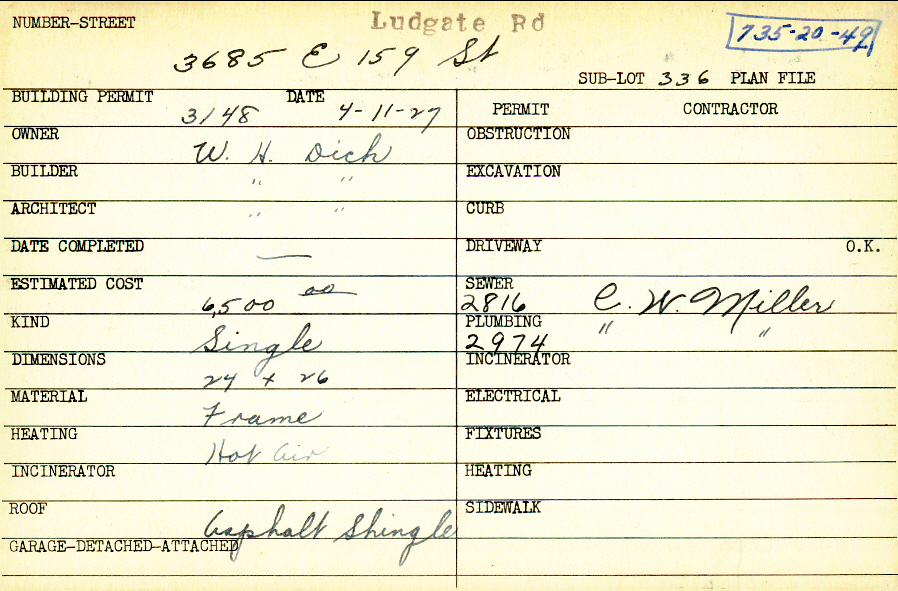 NUMBER-STREET
Ludgate Rd
735-20-49
3685 E 159 St
SUB-LOT 336 PLAN FILE
BUILDING PERMIT DATE
3148 4-11-27
PERMIT CONTRACTOR
OWNER
W. H. Dich
OBSTRUCTION
BUILDER
" "
EXCAVATION
ARCHITECT
" "
CURB
DATE COMPLETED
—
DRIVEWAY O.K.
ESTIMATED COST
6,500 00
SEWER
2816 C. W. Miller
KIND
Single
PLUMBING
2974 " "
DIMENSIONS
24 + 26
INCINERATOR
MATERIAL
Frame
ELECTRICAL
HEATING
Hot Air
FIXTURES
INCINERATOR
HEATING
ROOF
Asphalt Shingle
SIDEWALK
GARAGE-DETACHED-ATTACHED